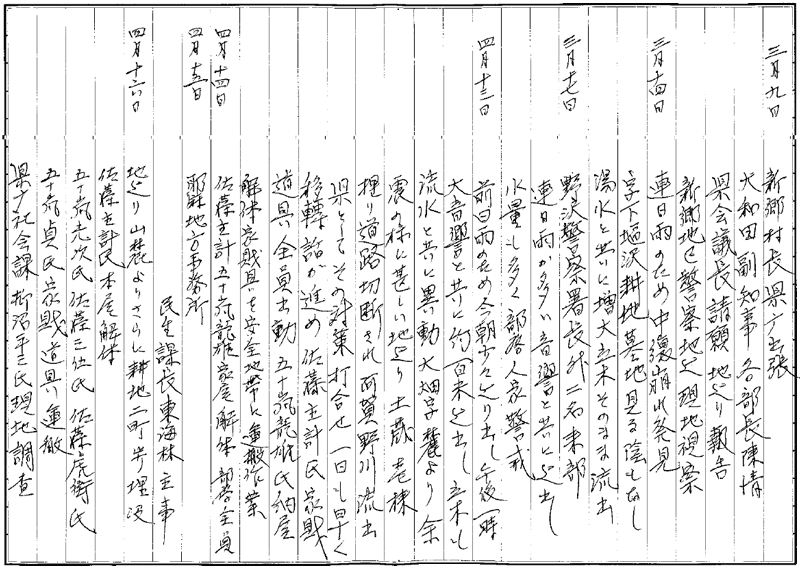 三月九日
新郷村長県庁出張
大和田副知事各部長陳情
県会議長請願地辷り報告
新郷地区警察地区現地視察
三月十四日
連日雨のため中腹崩れ発見
字下堰沢耕地墓地見る陰もなし
湯水と共に増大立木そのまま流出
三月十七日
野沢警察署長外二名来部
連日雨が多い音響と共に辷出し
水量も多く部落人家警戒
四月十三日
前日雨のため今朝少々辷り出し午後一時
大音響と共に約百米辷出し立木も
流水と共に異動大畑字麓より余
震の様に甚しい地辷り土蔵壱棟
埋り道路切断され阿賀野川流出
県としてその対策打合せ一日も早く
移轉詣が進め佐藤主計氏家財
道具全員出動五十嵐龍雄氏納屋
解体家財具を安全地帯に運搬作業
四月十四日
佐藤主計五十嵐龍雄家屋解体部落全員
四月十五日
耶麻地方事務所
民生課長東海林主事
四月十六日
地辷り山麓よりさらに耕地二町歩埋没
佐藤主計氏本屋解体
五十嵐光次氏佐藤三伍氏佐藤虎衛氏
五十嵐貞氏家財道具運搬
県庁社会課柳沼平三氏現地調査